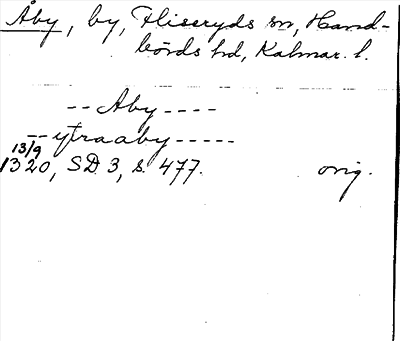 Åby, by, Fliseryds sn, Hand-
börds hd, Kalmar l.
-- Aby ----
-- ytraaby -----
13/9
1320, SD 3, s. 477. orig.